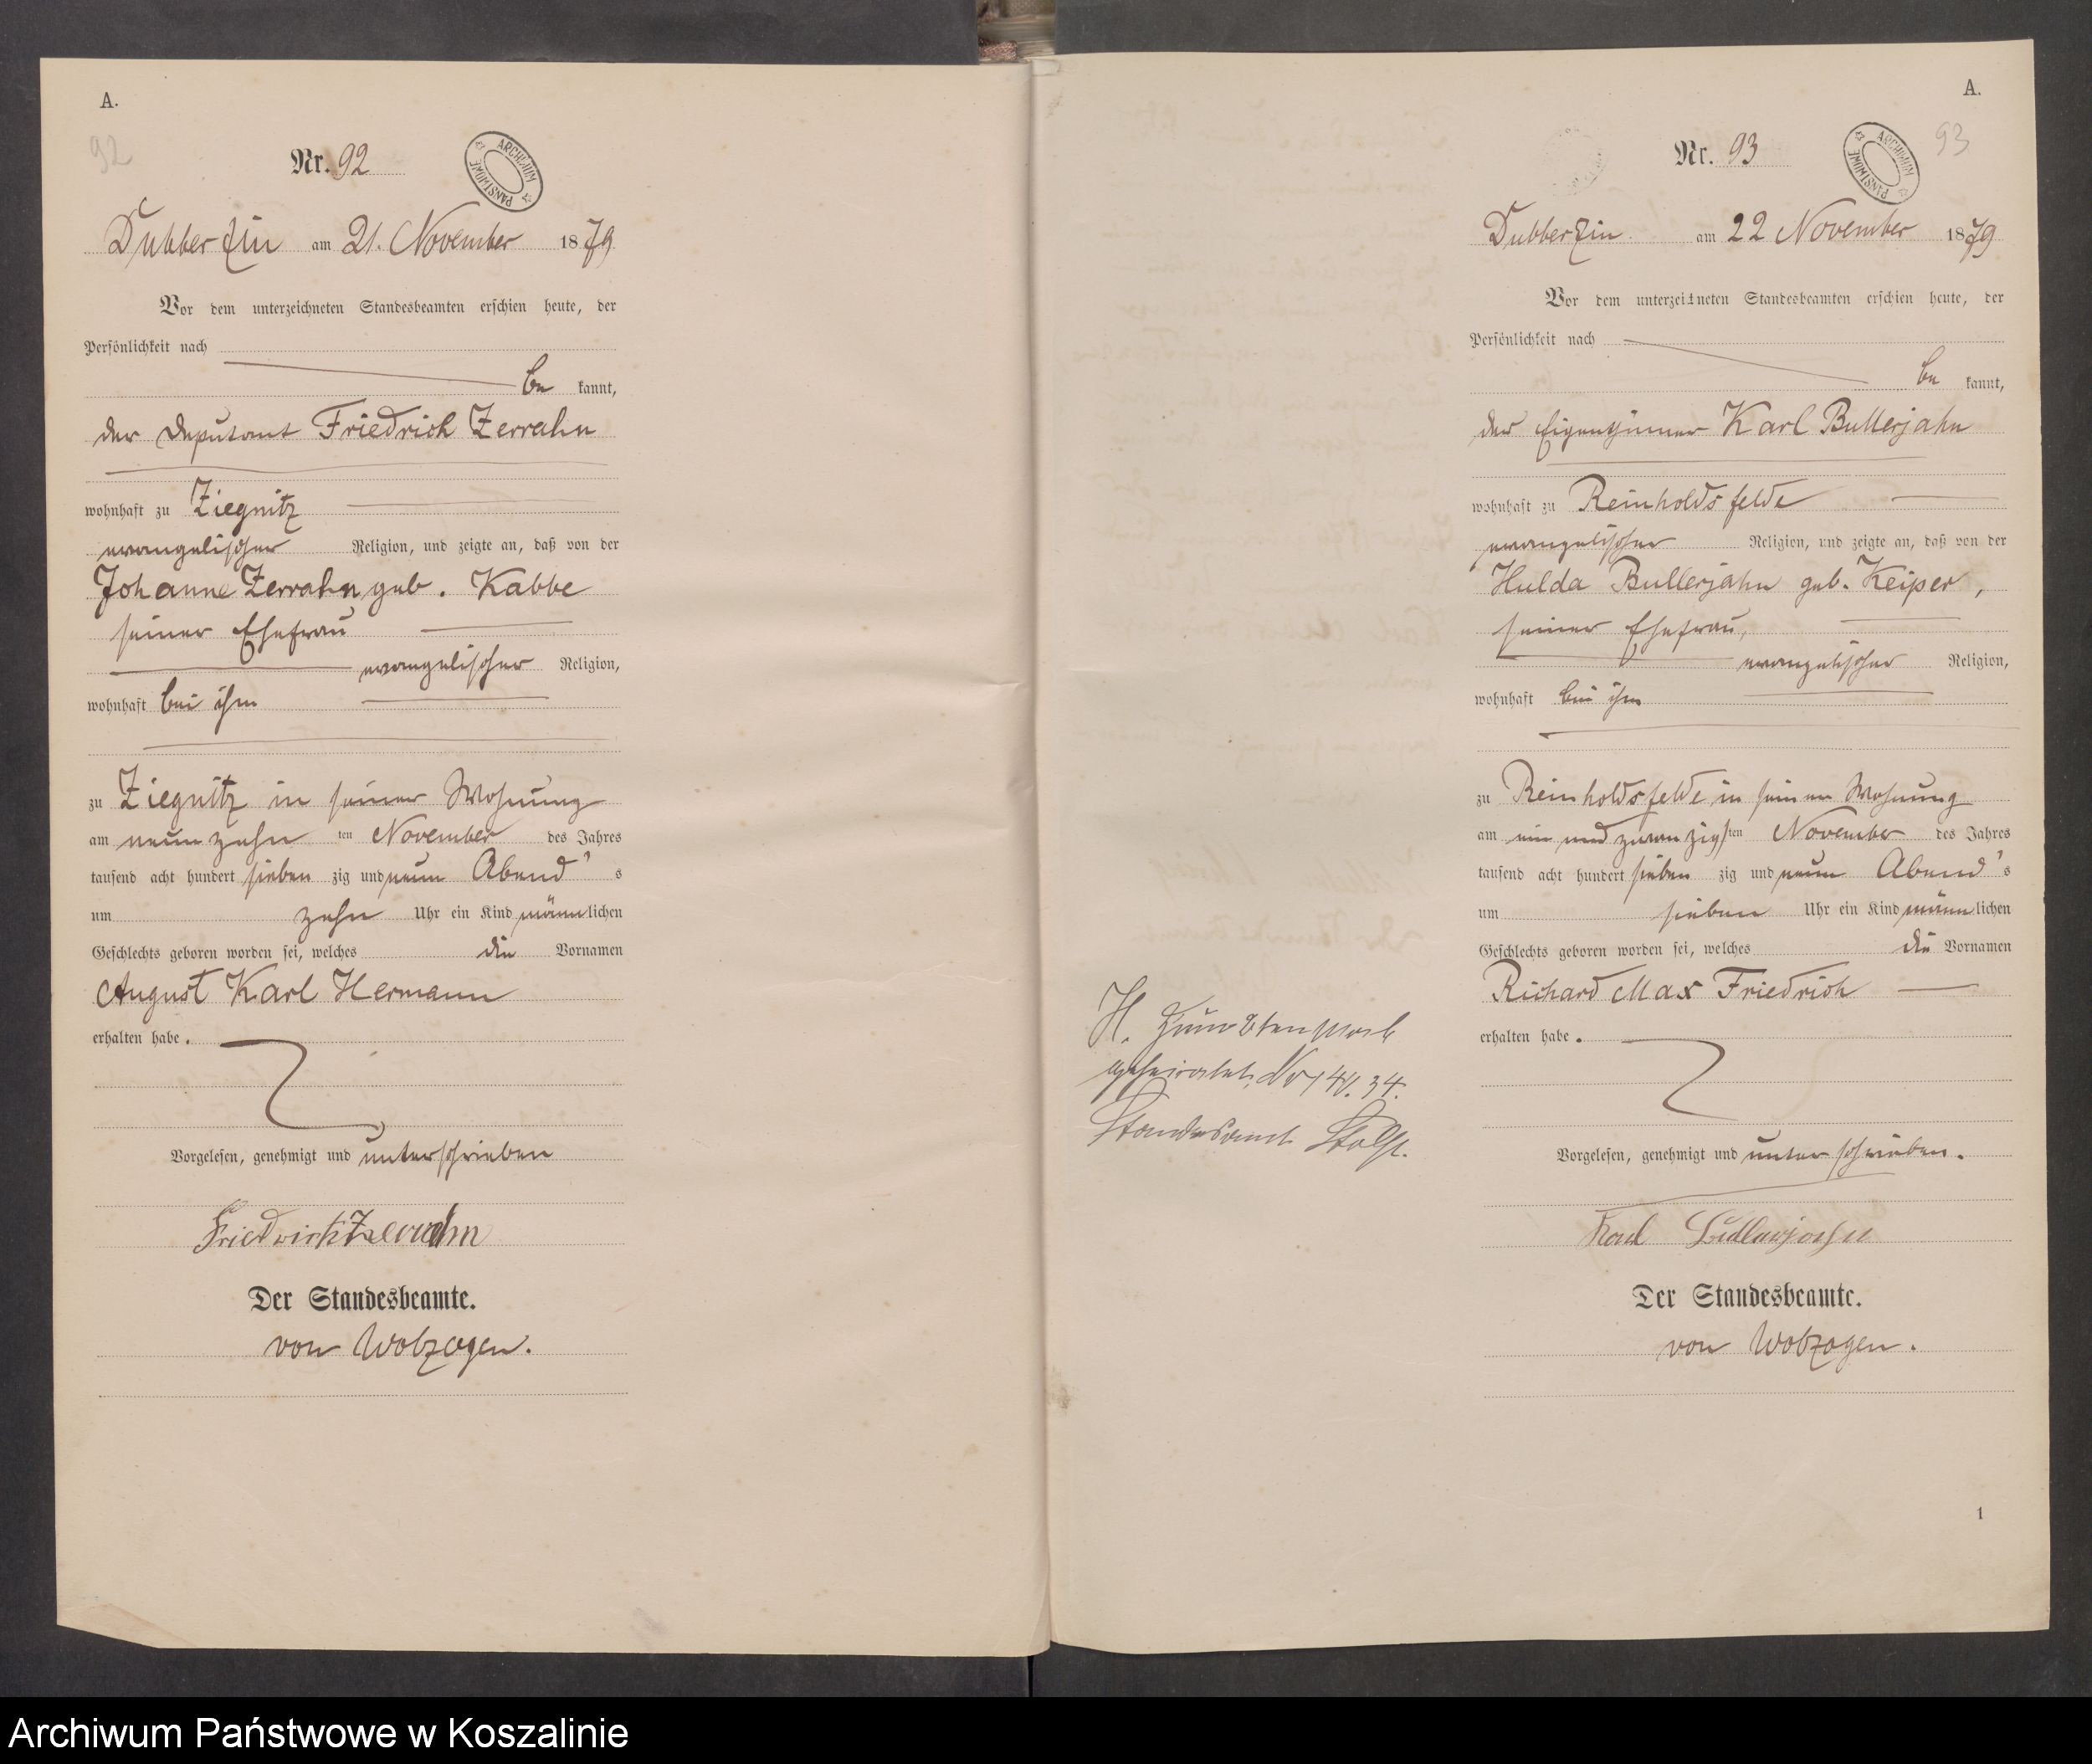 A.
92
Nr. 92
ARCHIWUM PAŃSTWOWE
Dubberzin am 21. November 1879
Vor dem unterzeichneten Standesbeamten erschien heute, der
Persönlichkeit nach
be kannt,
der Deputant Friedrich Zerrahn
wohnhaft zu Ziegnitz
evangelischer Religion, und zeigte an, daß von der
Johanne Zerrahn geb. Kabbe
seiner Ehefrau
evangelischer Religion,
wohnhaft bei ihm
zu Ziegnitz in seiner Wohnung
am neunzehn ten November des Jahres
tausend acht hundert sieben zig und neun Abend's
um zehn Uhr ein Kind männlichen
Geschlechts geboren worden sei, welches die Vornamen
August Karl Hermann
erhalten habe.
Vorgelesen, genehmigt und unterschrieben
Friedrich Zerrahn
Der Standesbeamte.
von Wolzogen.
A.
93
Nr. 93
ARCHIWUM PAŃSTWOWE
Dubberzin am 22 November 1879
Vor dem unterzeichneten Standesbeamten erschien heute, der
Persönlichkeit nach
be kannt,
der Eigenthümer Karl Bullerjahn
wohnhaft zu Reinholdsfelde
evangelischer Religion, und zeigte an, daß von der
Hulda Bullerjahn geb. Keiper,
seiner Ehefrau,
evangelischer Religion,
wohnhaft bei ihm
zu Reinholdsfelde in seiner Wohnung
am ein und zwanzigsten November des Jahres
tausend acht hundert sieben zig und neun Abend's
um sieben Uhr ein Kind männlichen
Geschlechts geboren worden sei, welches die Vornamen
Richard Max Friedrich
erhalten habe.
Vorgelesen, genehmigt und unterschrieben.
Karl Bullerjahn
Der Standesbeamte.
von Wolzogen.
1
H. zum 2ten Male
geheiratet. Nr
Standesamt Stolp.
Archiwum Państwowe w Koszalinie